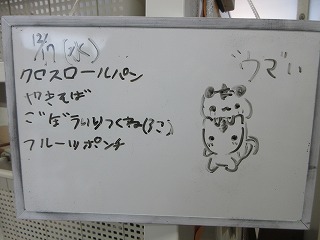 12/17(水)
クロスロールパン
やきそば
ごぼう入りつくね(3こ)
フルーツポンチ
ウマい